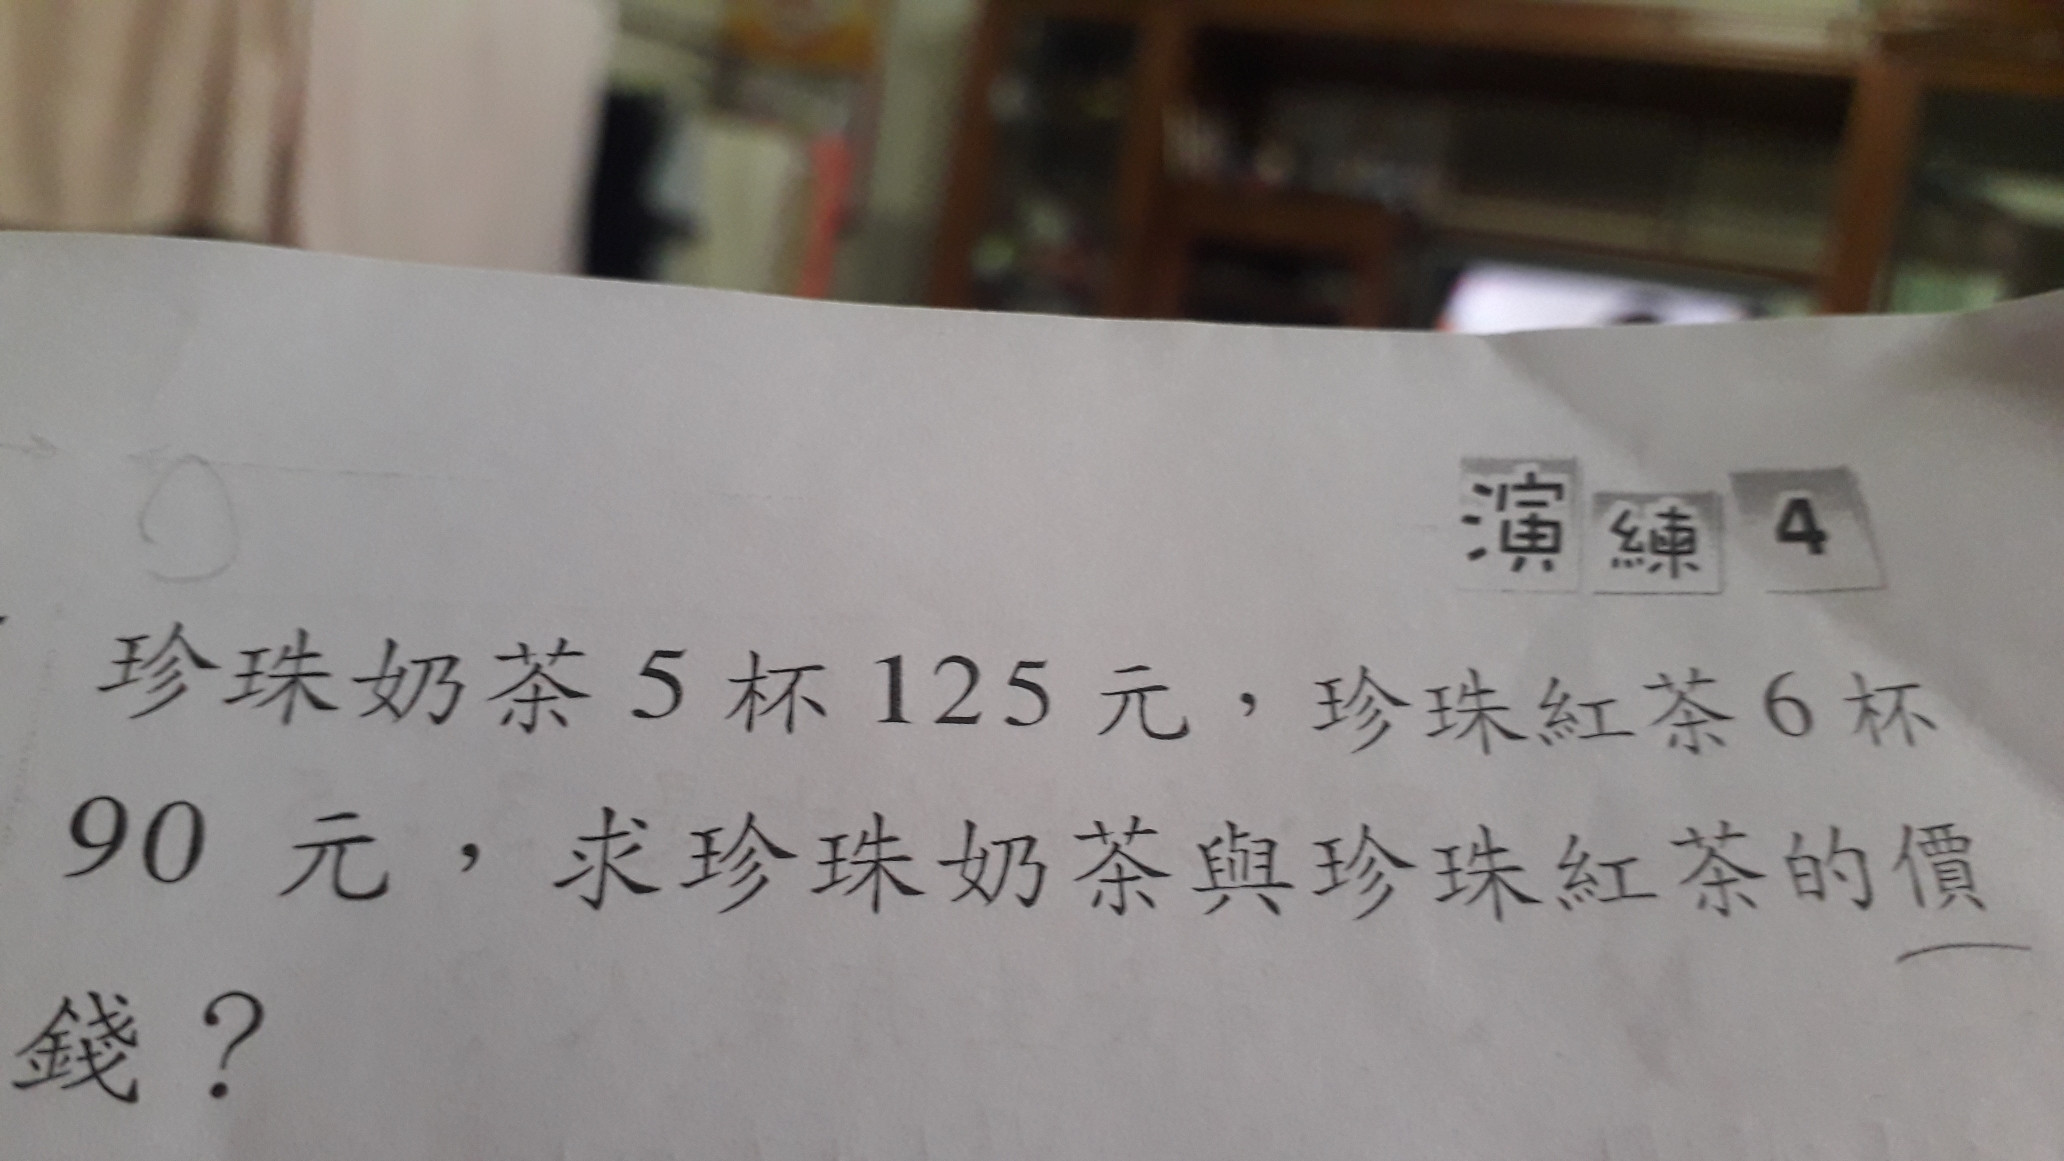 演練4
珍珠奶茶5杯125元，珍珠紅茶6杯
90元，求珍珠奶茶與珍珠紅茶的價
錢？